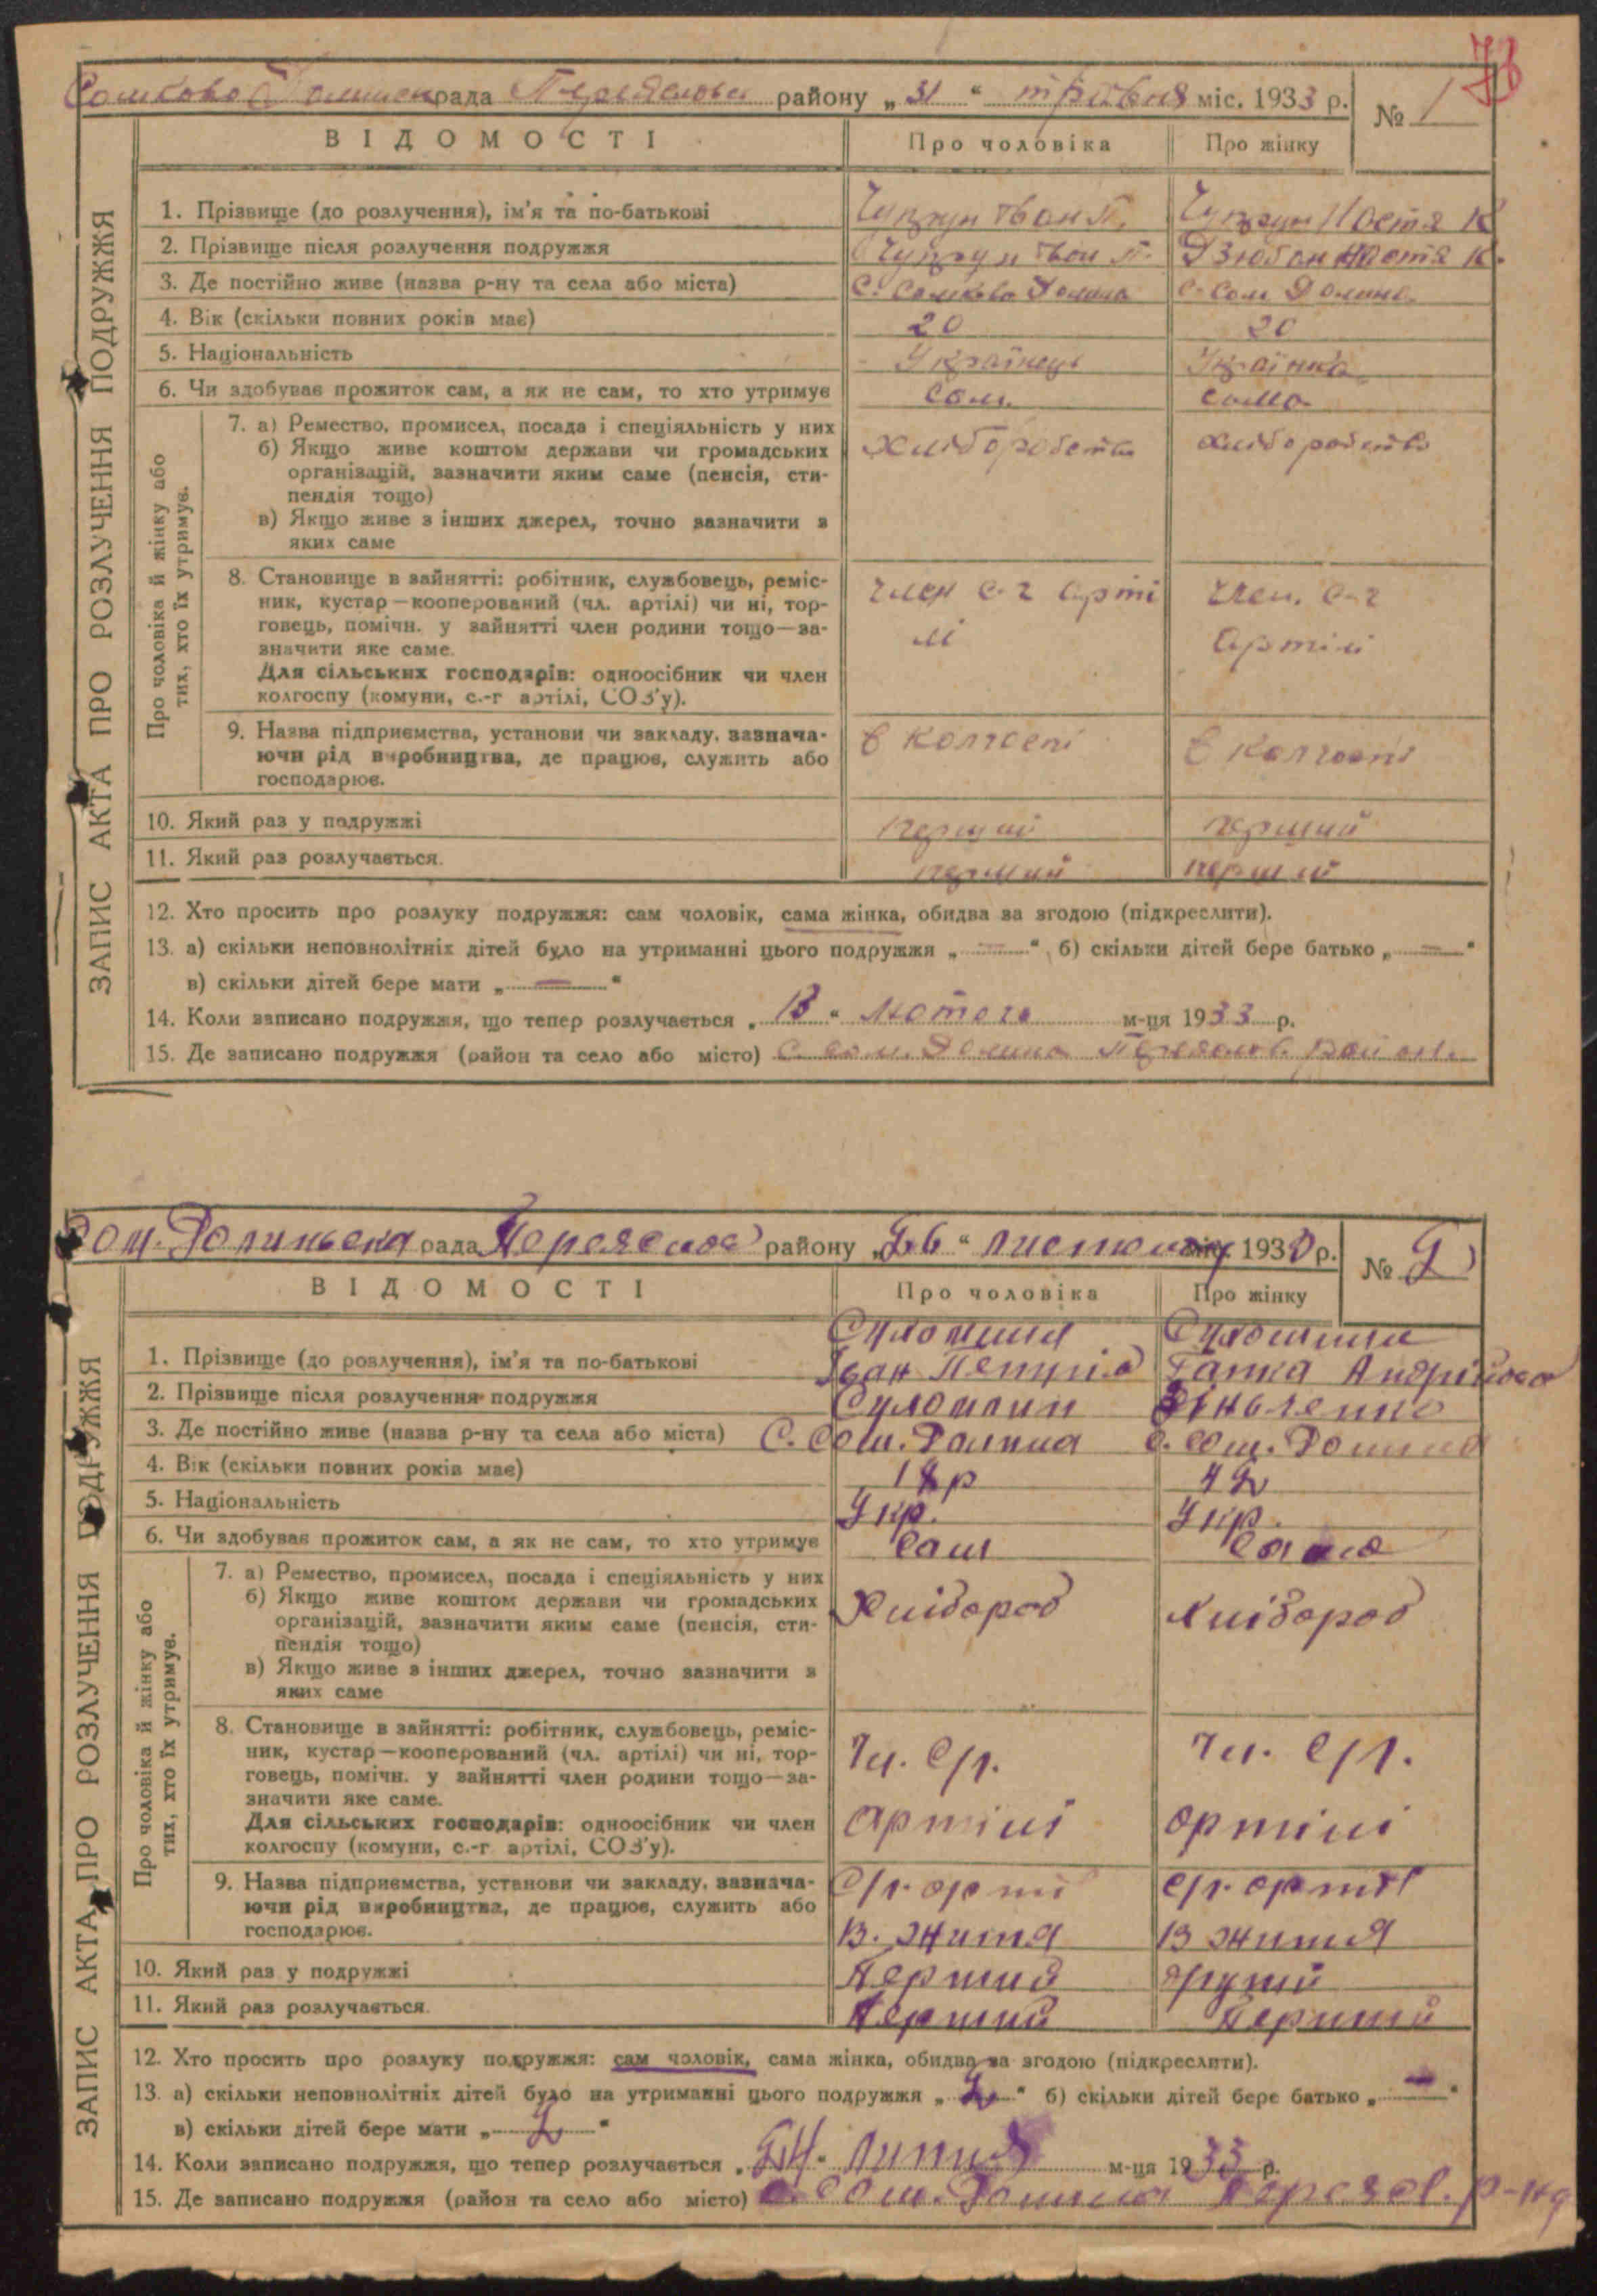 76
Сомково Долинська рада Переяславськ району „31“ травня міс. 1933 р. № 1
ВІДОМОСТІ Про чоловіка Про жінку
ЗАПИС АКТА ПРО РОЗЛУЧЕННЯ ПОДРУЖЖЯ
1. Прізвище (до розлучення), ім'я та по-батькові Чупрун Іван П. Чупрун Настя К
2. Прізвище після розлучення подружжя Чупрун Іван П. Дзюбан Настя К.
3. Де постійно живе (назва р-ну та села або міста) С. Сомково Долина С. Сом Долина
4. Вік (скільки повних років має) 20 20
5. Національність Українець Українка
6. Чи здобував прожиток сам, а як не сам, то хто утримує Сам. сама
Про чоловіка й жінку або тих, хто їх утримує.
7. а) Ремество, промисел, посада і спеціяльність у них хліборобство хліборобство
б) Якщо живе коштом держави чи громадських
організацій, зазначити яким саме (пенсія, сти-
пендія тощо)
в) Якщо живе з інших джерел, точно зазначити з
яких саме
8. Становище в зайнятті: робітник, службовець, реміс- член с-г арті член. с-г
ник, кустар—кооперований (чл. артілі) чи ні, тор- лі артілі
говець, помічн. у зайнятті член родини тощо—за-
значити яке саме.
Для сільських господарів: одноосібник чи член
колгоспу (комуни, с.-г артілі, СОЗ'у).
9. Назва підприємства, установи чи закладу, зазнача- в колгоспі в колгоспі
ючи рід виробництва, де працює, служить або
господарює.
10. Який раз у подружжі перший перший
11. Який раз розлучається. перший перший
12. Хто просить про розлуку подружжя: сам чоловік, сама жінка, обидва за згодою (підкреслити).
13. а) скільки неповнолітніх дітей було на утриманні цього подружжя „—“ б) скільки дітей бере батько „—“
в) скільки дітей бере мати „—“
14. Коли записано подружжя, що тепер розлучається „13“ Лютого м-ця 1933 р.
15. Де записано подружжя (район та село або місто) С. Сом. Долина Переяслов. район.
Сом. Долинська рада Переяслов району „26“ листопаду міс. 1933 р. № 2
ВІДОМОСТІ Про чоловіка Про жінку
ЗАПИС АКТА ПРО РОЗЛУЧЕННЯ ПОДРУЖЖЯ
1. Прізвище (до розлучення), ім'я та по-батькові Іван Ганка Андріївна
2. Прізвище після розлучення подружжя
3. Де постійно живе (назва р-ну та села або міста) С. Сом. Долина с. Сом. Долина
4. Вік (скільки повних років має) 42
5. Національність Укр. Укр.
6. Чи здобував прожиток сам, а як не сам, то хто утримує Сам Сама
Про чоловіка й жінку або тих, хто їх утримує.
7. а) Ремество, промисел, посада і спеціяльність у них Хлібороб Хлібороб
б) Якщо живе коштом держави чи громадських
організацій, зазначити яким саме (пенсія, сти-
пендія тощо)
в) Якщо живе з інших джерел, точно зазначити з
яких саме
8. Становище в зайнятті: робітник, службовець, реміс- Чл. С/г. Чл. С/г.
ник, кустар—кооперований (чл. артілі) чи ні, тор-
говець, помічн. у зайнятті член родини тощо—за-
значити яке саме.
Для сільських господарів: одноосібник чи член артілі артілі
колгоспу (комуни, с.-г артілі, СОЗ'у).
9. Назва підприємства, установи чи закладу, зазнача- С/г. арті с/г. артіл
ючи рід виробництва, де працює, служить або В. життя В життя
господарює.
10. Який раз у подружжі Перший другий
11. Який раз розлучається. Перший Перший
12. Хто просить про розлуку подружжя: сам чоловік, сама жінка, обидва за згодою (підкреслити).
13. а) скільки неповнолітніх дітей було на утриманні цього подружжя „2“ б) скільки дітей бере батько „—“
в) скільки дітей бере мати „2“
14. Коли записано подружжя, що тепер розлучається „24“ Липня м-ця 1933 р.
15. Де записано подружжя (район та село або місто) С. Сом. Долина Переясл. р-ну